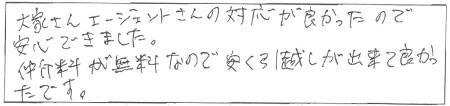 大家さん エージェントさんの対応が良かったので
安心できました。
仲介料が無料なので安く引越しが出来て良かっ
たです。